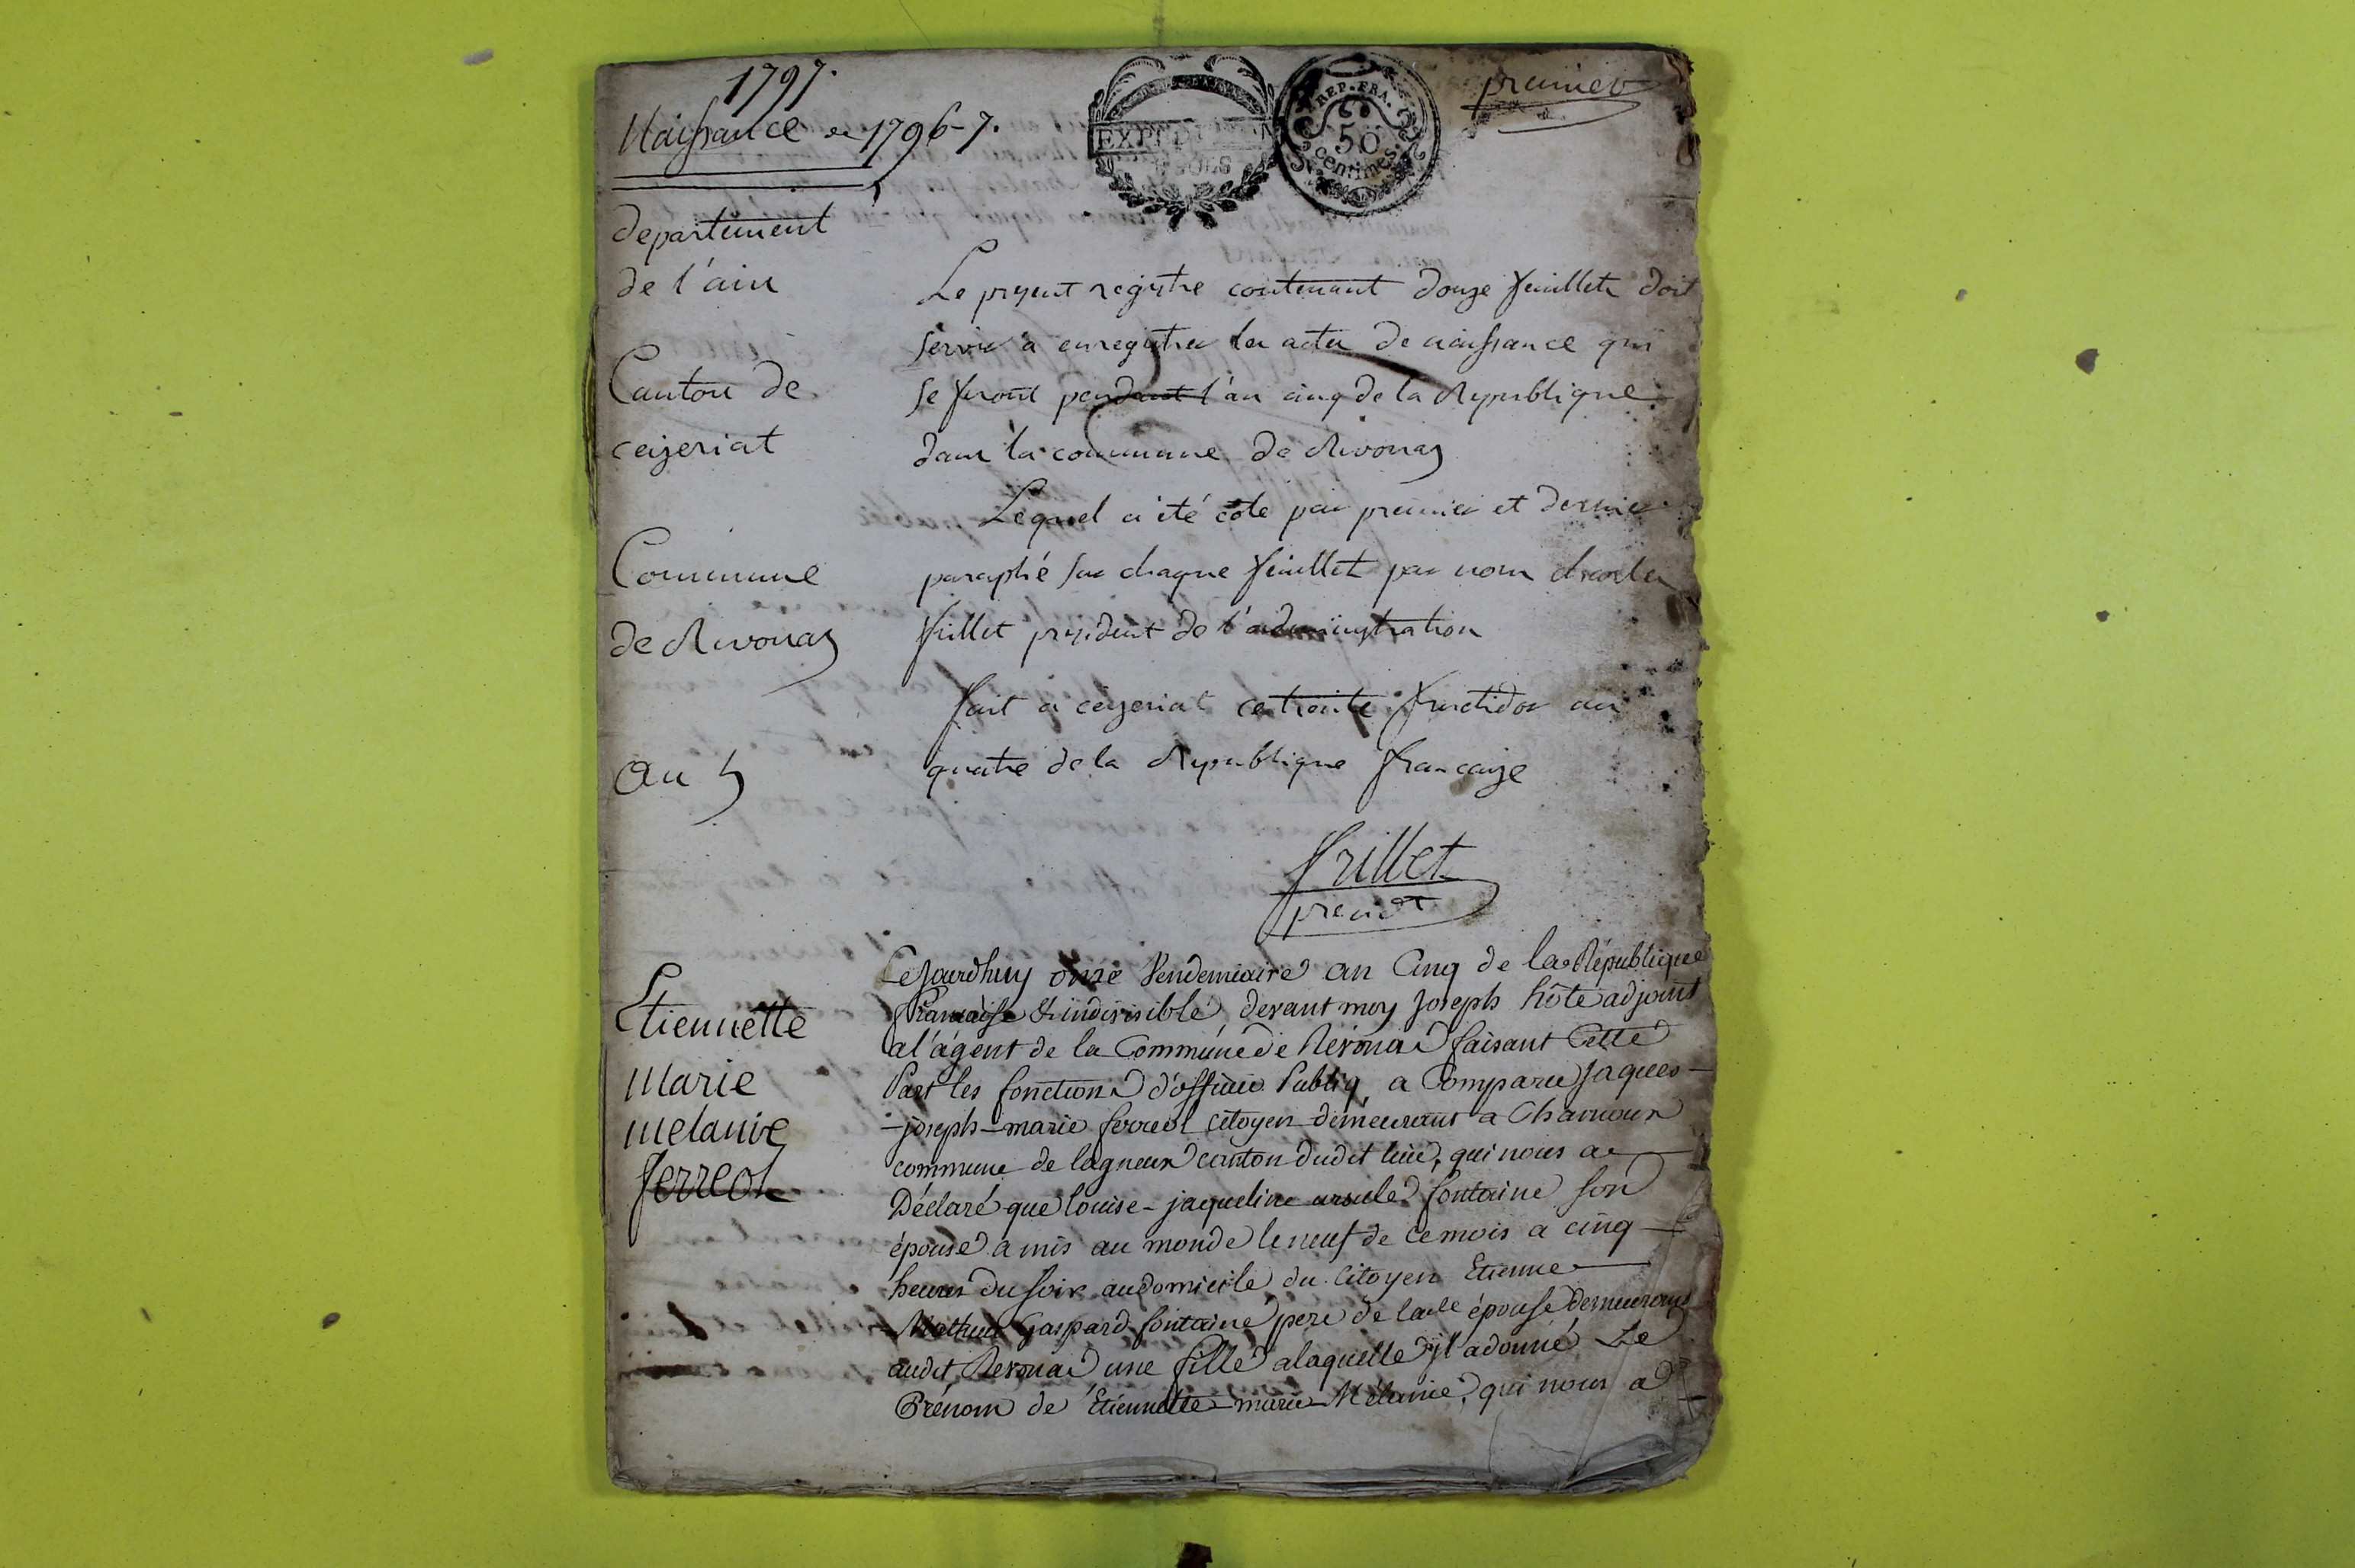 1797.
Naissance de 1796-7.
EXPEDITION
REP. FRA.
50
centimes
premier
departement
de l'ain
Canton de
ceizeriat
Commune
de Revonas
an 5
Le present registre contenant douze feuillets doit
servir a enregistrer les actes de naissance qui
se feront pendant l'an cinq de la Republique
dans la commune de Revonas
Lequel a été coté par premier et dernier
paraphé sur chaque feuillet par nous charles
frillet president de l'administration
fait a ceyzeriat ce trente fructidor an
quatre de la Republique francaize
frillet
presidt
Etiennette
marie
melanie
ferreol
Cejourdhuy onze Vendemiaire an Cinq de la République
francaise & indivisible, devant moy Joseph hôte adjoint
a l'agent de la Commune de Revonas faisant Cette
Part les fonctions d'officier Publiq, a Comparu Jaques
-joseph-marie ferreol citoyen demeurant a Chamoux
commune de lagneux canton dudit lieu, qui nous a
Déclaré que louise-jaqueline ursule fontaine son
épouse a mis au monde le neuf de ce mois a cinq
heures du soir au domicile du Citoyen Etienne
Gaspard fontaine pere de lade épouse demeurant
audit Revonas une fille a laquelle jl a donné Le
Prénom de Etiennette-marie-Melanie, qui nous a